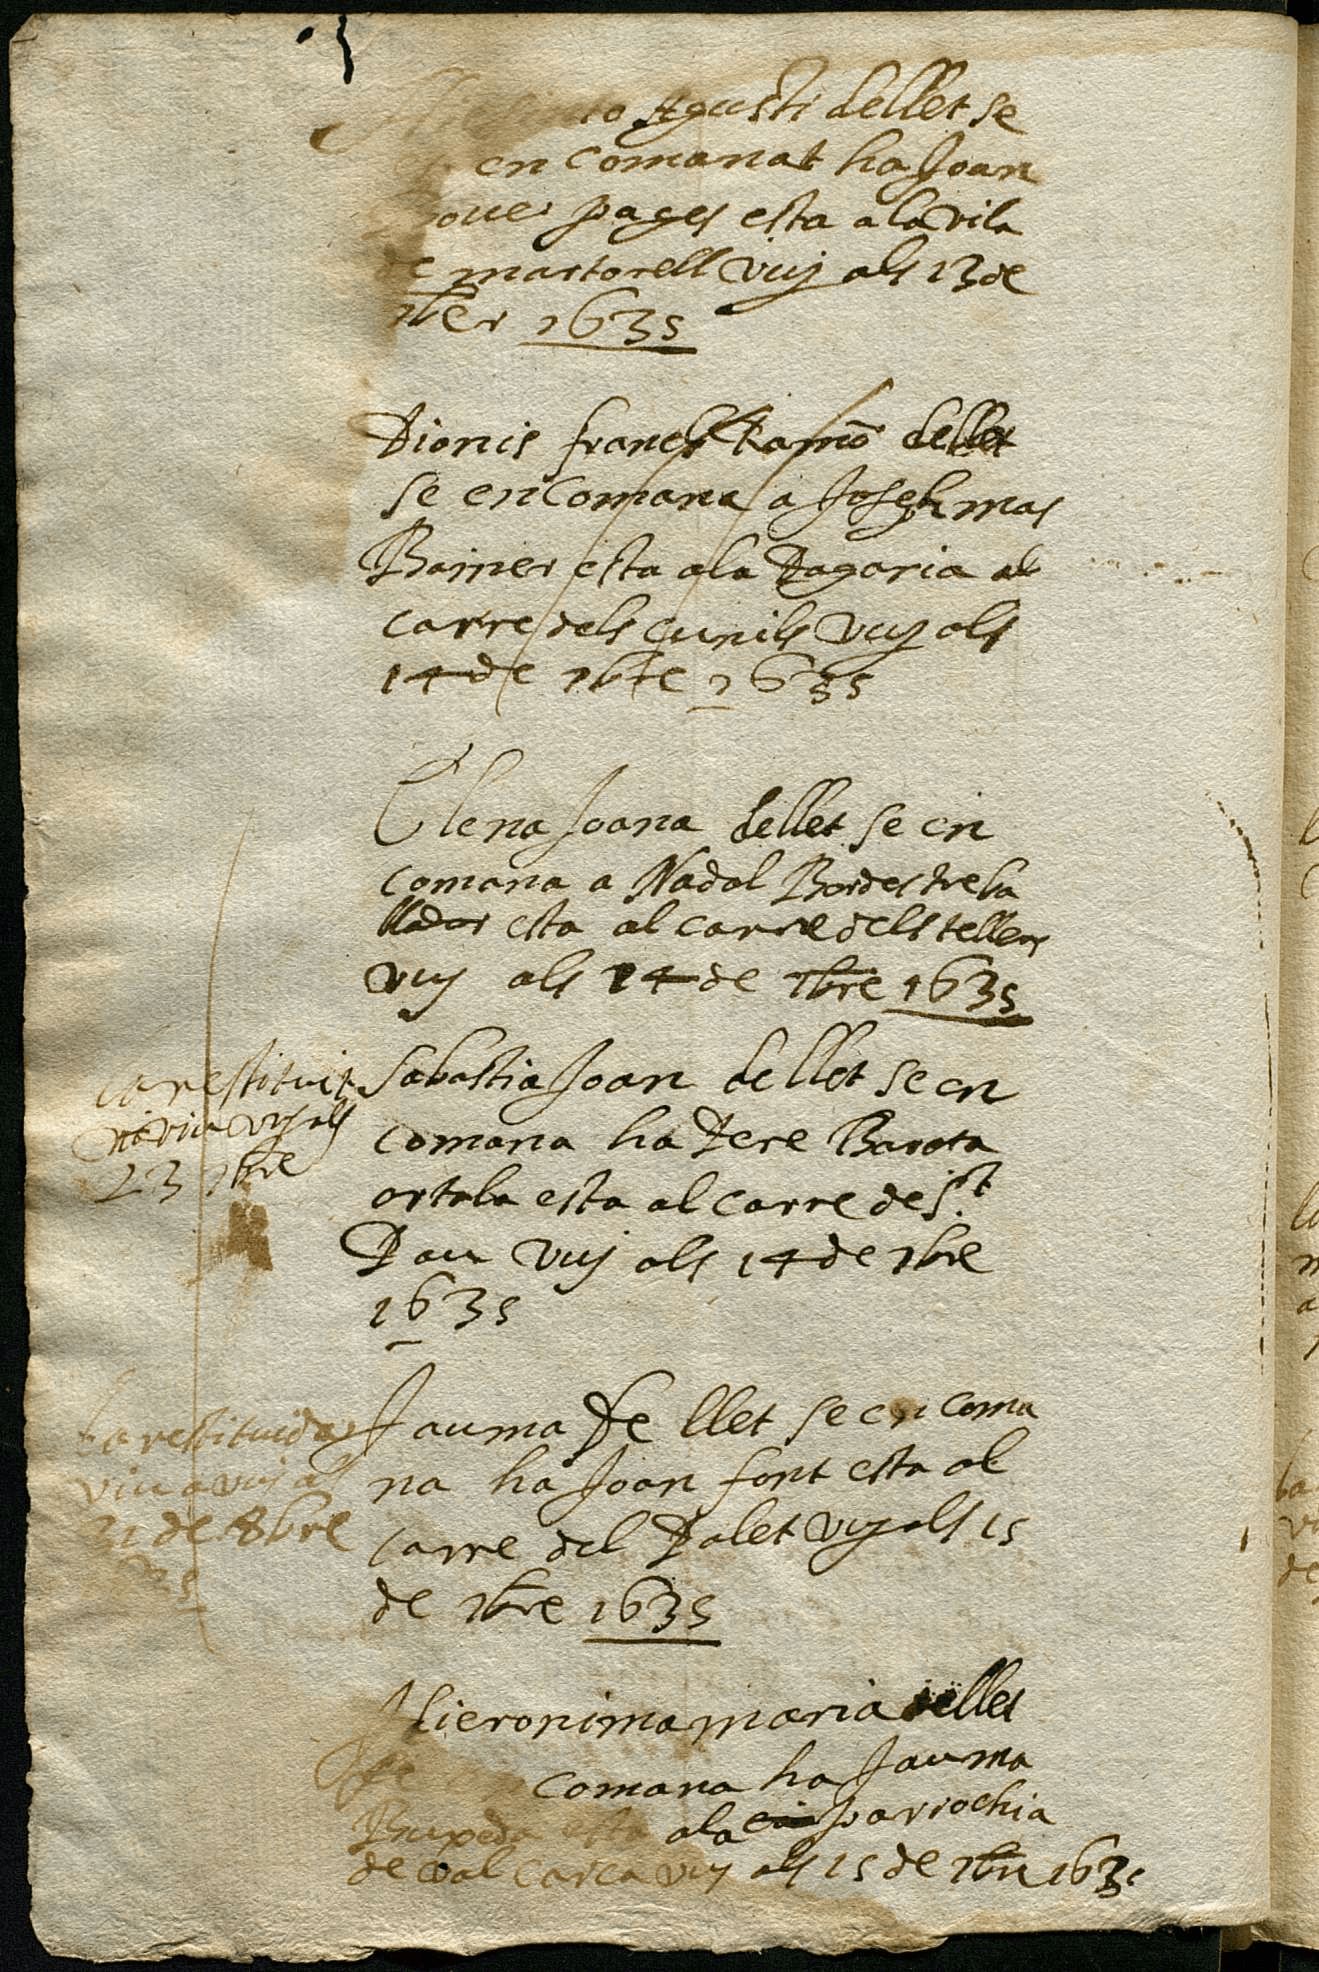 Agusti de llet se
en comanat ha Joan
pages esta a la vila
de martorell vuy als 13 de
7ber 1635
Dionis Ramō de llet
se encomana a Joseph mas
Barner esta a la Dagaria al
carre dels cunils vuy als
14 de 7bre 1635
Elena Joana de llet se en
comana a Nadal Bordes treba
llador esta al carre dels tellers
vuy als 14 de 7bre 1635
la restituit
vuy als
23 7bre
Sabastia Joan de llet se en
comana ha Pere Barota
ortola esta al carre de St
Pau vuy als 14 de 7bre
1635
la restituida
viua vuy als
31 de 8bre
Jauma de llet se encoma
na ha Joan font esta al
carre del Palet vuy als 15
de 7bre 1635
Hieronima maria de llet
se comana ha Jauma
esta a la parrochia
de val carca vuy als 15 de 7bre 1635